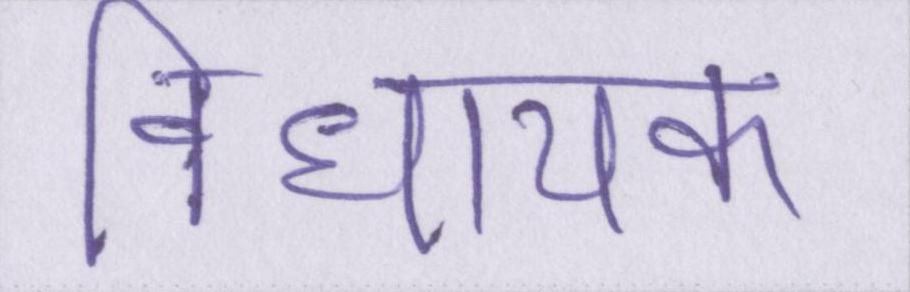 विधायक